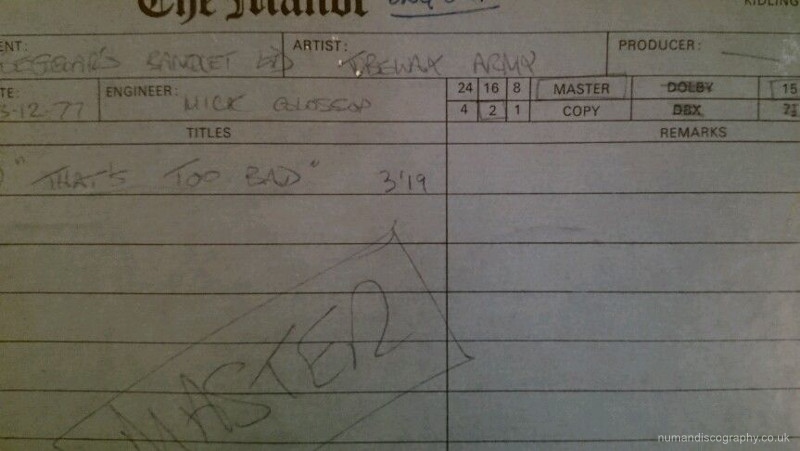 The Manor
KIDLING
ENT:
BEGGAR'S BANQUET LTD
ARTIST:
TUBEWAY ARMY
PRODUCER:
TE:
-12-77
ENGINEER:
MICK GLOSSOP
24 16 8 MASTER DOLBY 15
4 2 1 COPY DBX 7½
TITLES
REMARKS
"THAT'S TOO BAD" 3'19
MASTER
numandiscography.co.uk